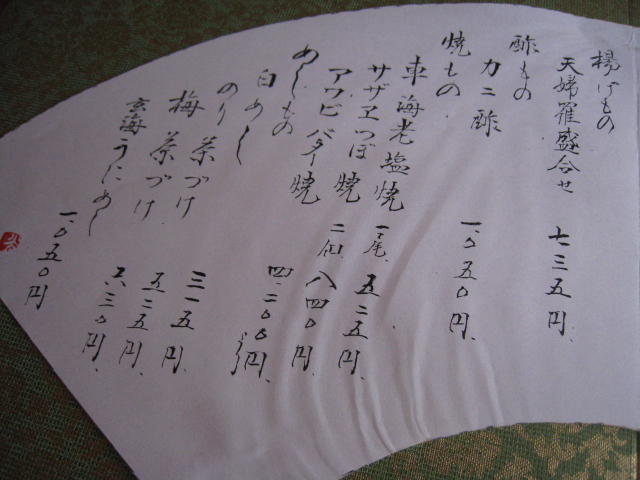 揚げもの
天婦羅盛合せ 七三五円、
酢もの
カニ酢 一、〇五〇円、
焼もの
車海老塩焼 一尾、五二五円、
サザエつぼ焼 二個、八四〇円、
アワビバター焼 四、二〇〇円、より
めしもの
白めし 三一五円、
のり茶づけ 五二五円、
梅茶づけ 六三〇円、
玄海うにめし 一、〇五〇円